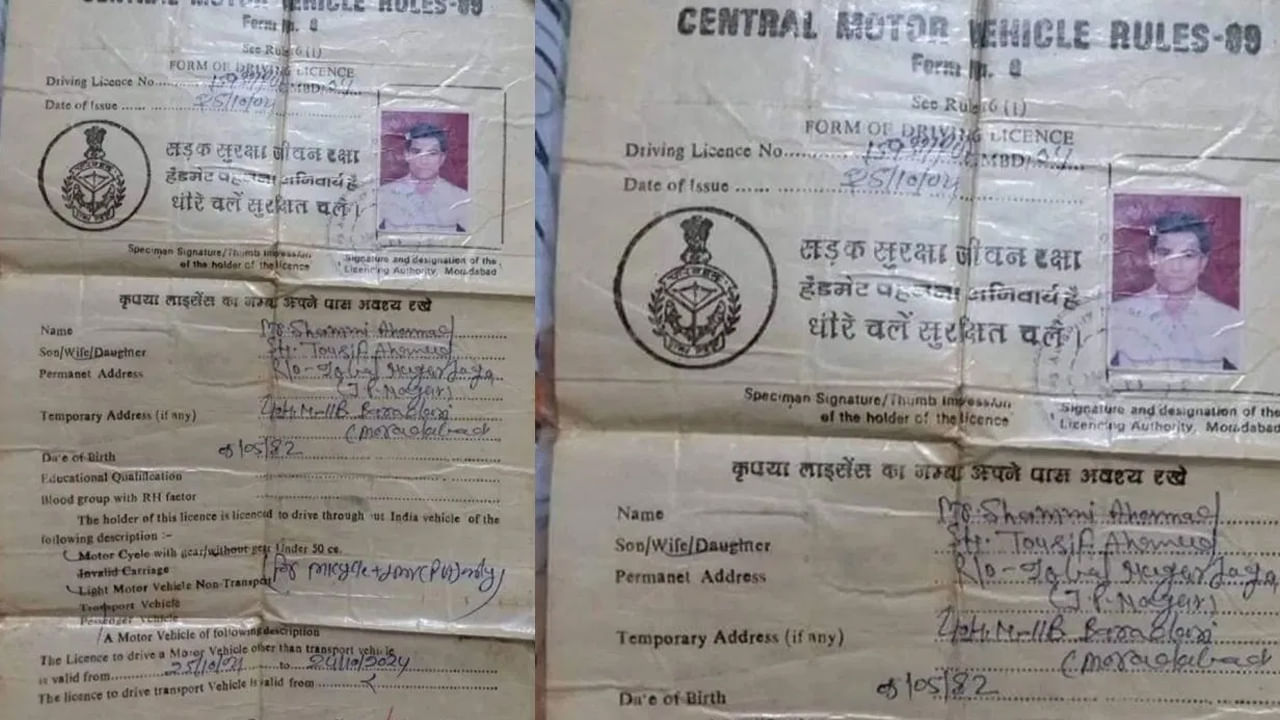 CENTRAL MOTOR VEHICLE RULES-89
Form No. 8
See Rule 6 (1)
FORM OF DRIVING LICENCE
Driving Licence No. MBD/04
Date of Issue 25/10/04
सड़क सुरक्षा जीवन रक्षा
हैडमेट पहनना अनिवार्य है
धीरे चलें सुरक्षित चलें।
Specimen Signature/Thumb Impression
of the holder of the licence
Signature and designation of the
Licencing Authority, Moradabad
कृपया लाइसेंस का नम्बर अपने पास अवश्य रखे
Name Mo. Shammi Ahemad
Son/Wife/Daugner S/o. Tousif Ahemed
Permanet Address R/o-Iqbal Nagar Joya
(J.P. Nagar)
Temporary Address (if any)
(Moradabad
Date of Birth /05/82
Educational Qualification
Blood group with RH factor
The holder of this licence is licenced to drive through out India vehicle of the
following description :-
Motor Cycle with gear/without gear Under 50 cc.
Invalid Carriage
Light Motor Vehicle Non-Transport (for M/cycle + LMV(Pvt) only)
Transport Vehicle
Passenger Vehicle
A Motor Vehicle of following description
The Licence to drive a Motor Vehicle other than transport vehicle
is valid from 25/10/04 to 24/10/2024
The licence to drive transport Vehicle is valid from
CENTRAL MOTOR VEHICLE RULES-89
Form No. 8
See Rule 6 (1)
FORM OF DRIVING LICENCE
Driving Licence No. MBD/04
Date of Issue 25/10/04
सड़क सुरक्षा जीवन रक्षा
हैडमेट पहनना अनिवार्य है
धीरे चलें सुरक्षित चलें।
Specimen Signature/Thumb Impression
of the holder of the licence
Signature and designation of the
Licencing Authority, Moradabad
कृपया लाइसेंस का नम्बर अपने पास अवश्य रखे
Name Mo. Shammi Ahemad
Son/Wife/Daugner S/o. Tousif Ahemed
Permanet Address R/o-Iqbal Nagar Joya
(J.P. Nagar)
Temporary Address (if any)
(Moradabad
Date of Birth /05/82